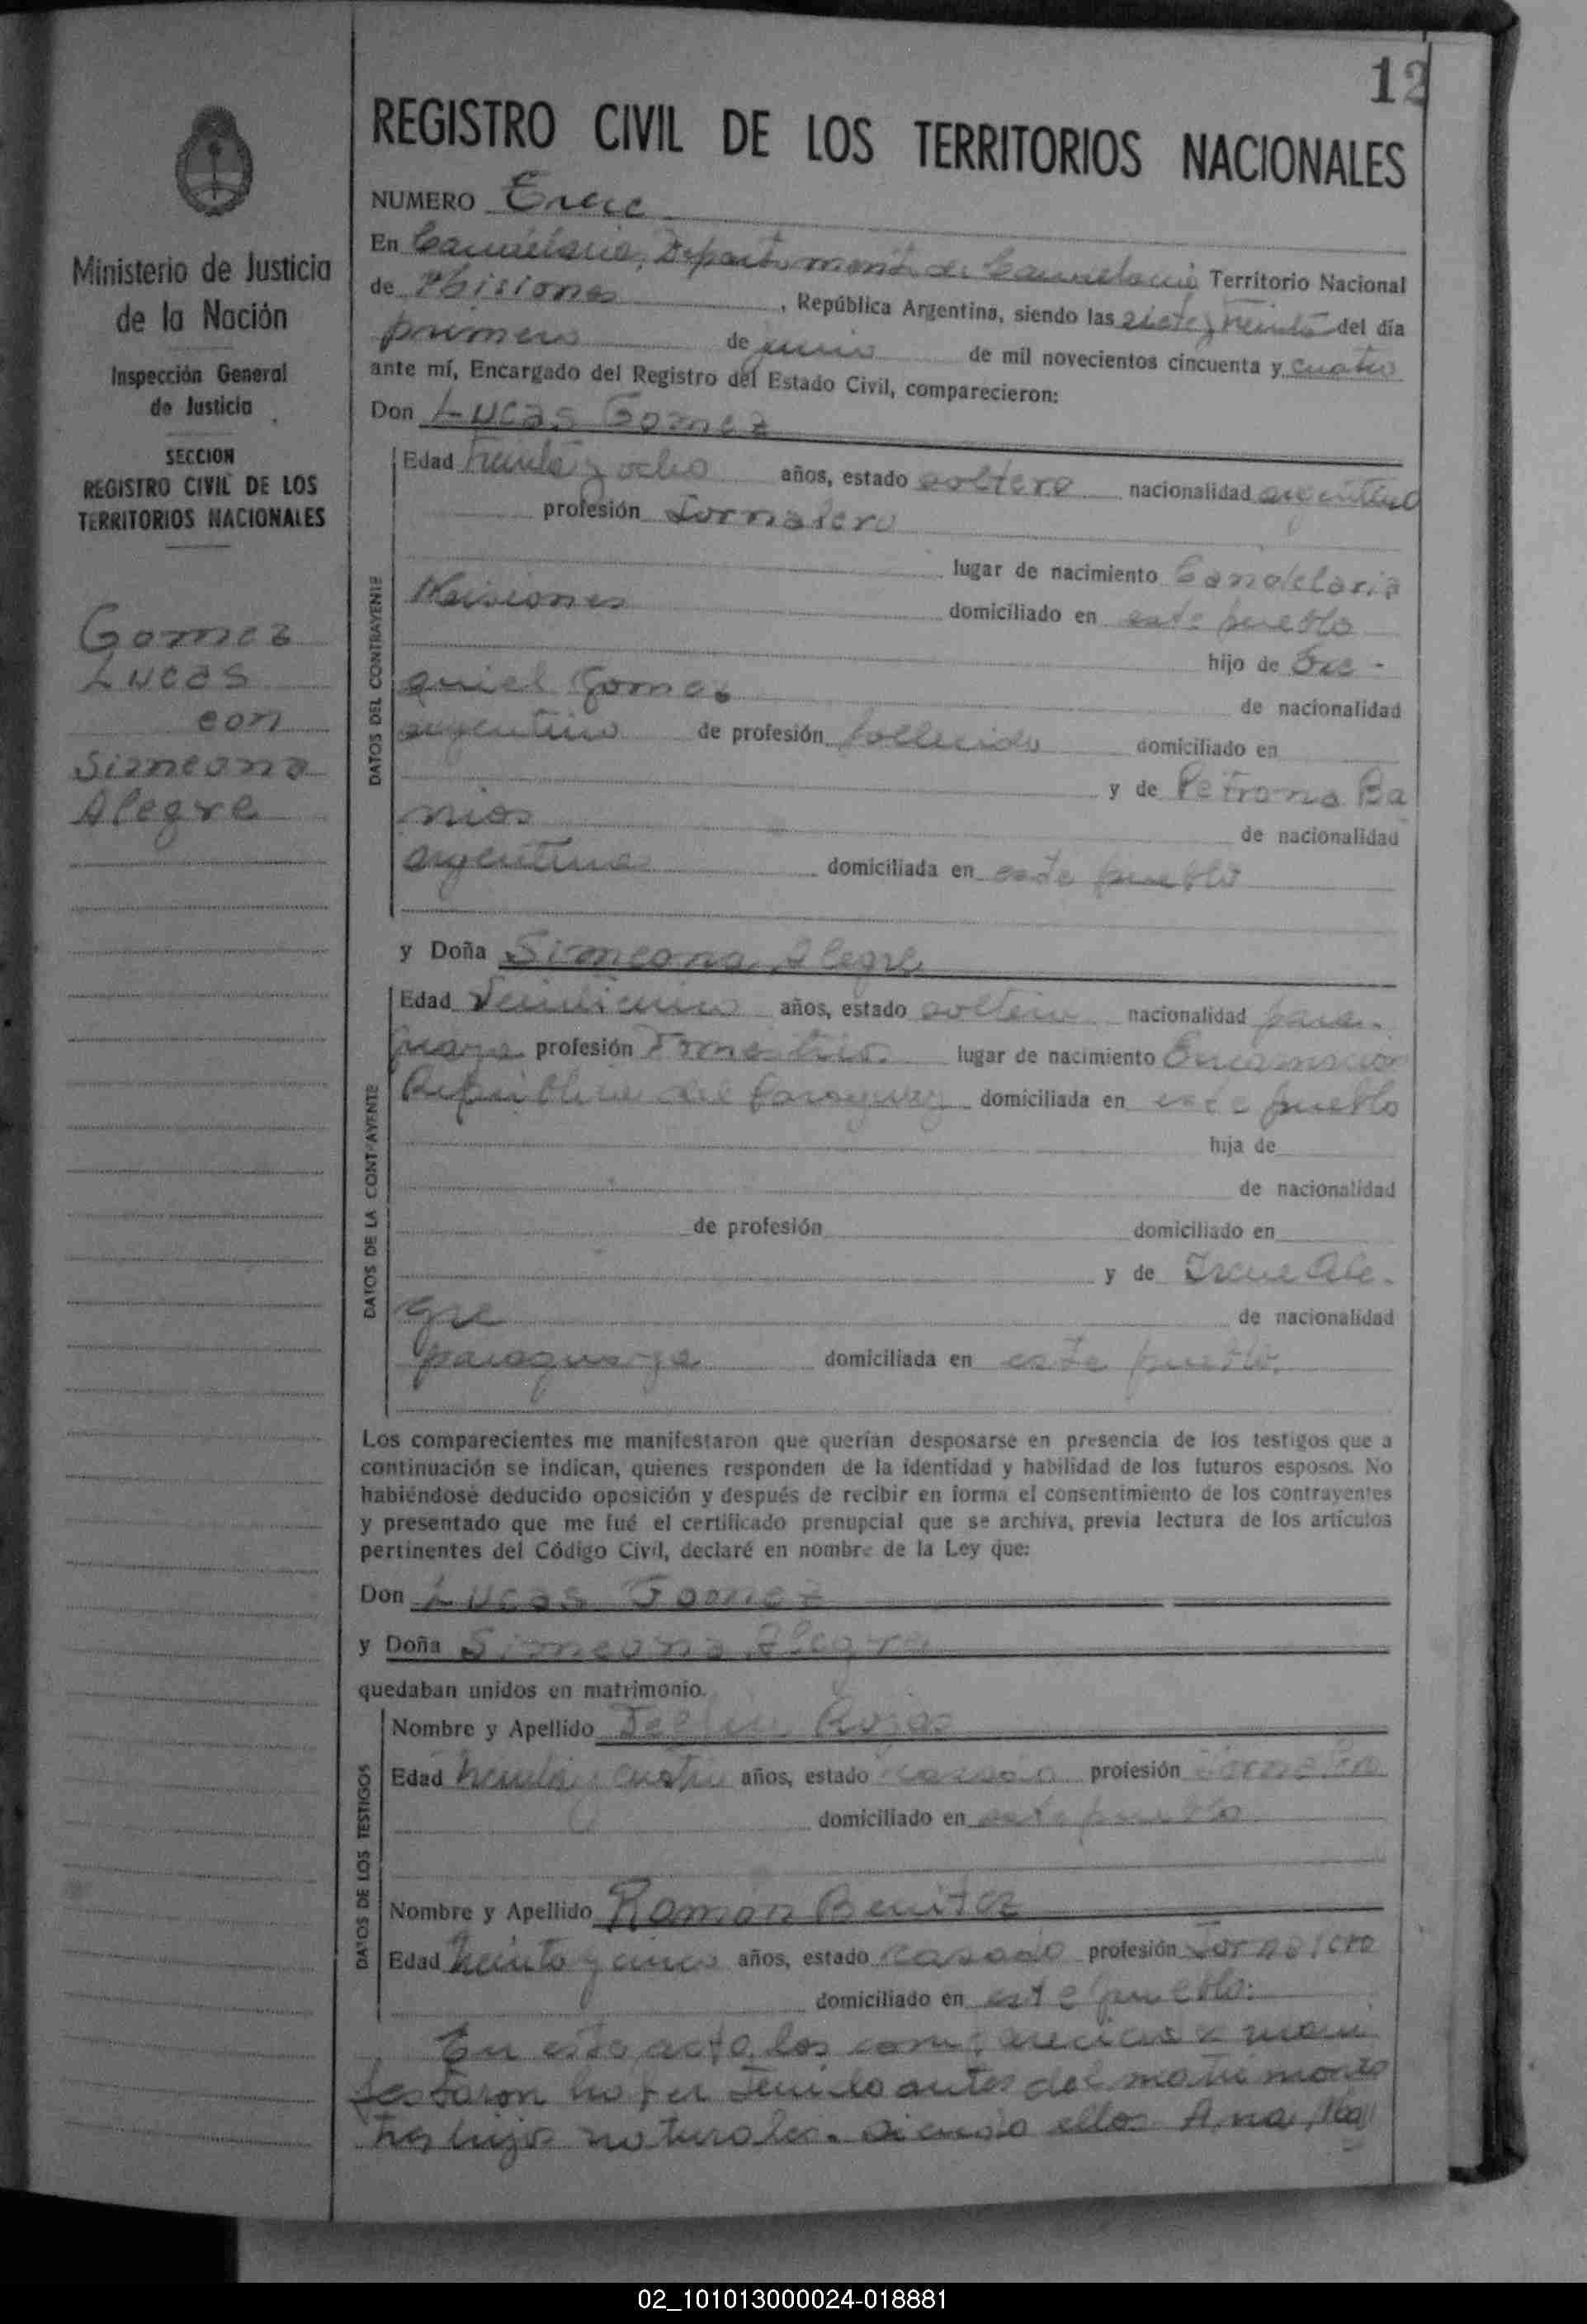 12
REGISTRO CIVIL DE LOS TERRITORIOS NACIONALES
Ministerio de Justicia
de la Nación
Inspección General
de Justicia
SECCION
REGISTRO CIVIL DE LOS
TERRITORIOS NACIONALES
Gomez
Lucas
con
Simeona
Alegre
NUMERO Once
En Candelaria, Departamento de Candelaria Territorio Nacional
de Misiones, República Argentina, siendo las siete y treinta del día
primero de junio de mil novecientos cincuenta y cuatro
ante mí, Encargado del Registro del Estado Civil, comparecieron:
Don Lucas Gomez
DATOS DEL CONTRAYENTE
Edad treinta y ocho años, estado soltero nacionalidad argentino
profesión Jornalero
lugar de nacimiento Candelaria
Misiones domiciliado en este pueblo
hijo de Eze-
quiel Gomez de nacionalidad
argentino de profesión fallecido domiciliado en
y de Petrona Ba
rrios de nacionalidad
argentina domiciliada en este pueblo
y Doña Simeona Alegre
DATOS DE LA CONTRAYENTE
Edad Veinticinco años, estado soltera nacionalidad para-
guaya profesión Domestica lugar de nacimiento Encarnación
Republica del Paraguay domiciliada en este pueblo
hija de
de nacionalidad
de profesión domiciliado en
y de Irene Ale-
gre de nacionalidad
paraguaya domiciliada en este pueblo.
Los comparecientes me manifestaron que querían desposarse en presencia de los testigos que a
continuación se indican, quienes responden de la identidad y habilidad de los futuros esposos. No
habiéndose deducido oposición y después de recibir en forma el consentimiento de los contrayentes
y presentado que me fué el certificado prenupcial que se archiva, previa lectura de los artículos
pertinentes del Código Civil, declaré en nombre de la Ley que:
Don Lucas Gomez
y Doña Simeona Alegre
quedaban unidos en matrimonio.
DATOS DE LOS TESTIGOS
Nombre y Apellido Rojas
Edad treinta y cuatro años, estado casado profesión Jornalero
domiciliado en este pueblo
Nombre y Apellido Ramón Benitez
Edad treinta y cinco años, estado casado profesión Jornalero
domiciliado en este pueblo:
En este acto los mani
festaron haber tenido antes del matrimonio
tres hijos naturales. siendo ellos Ana,
02_101013000024-018881